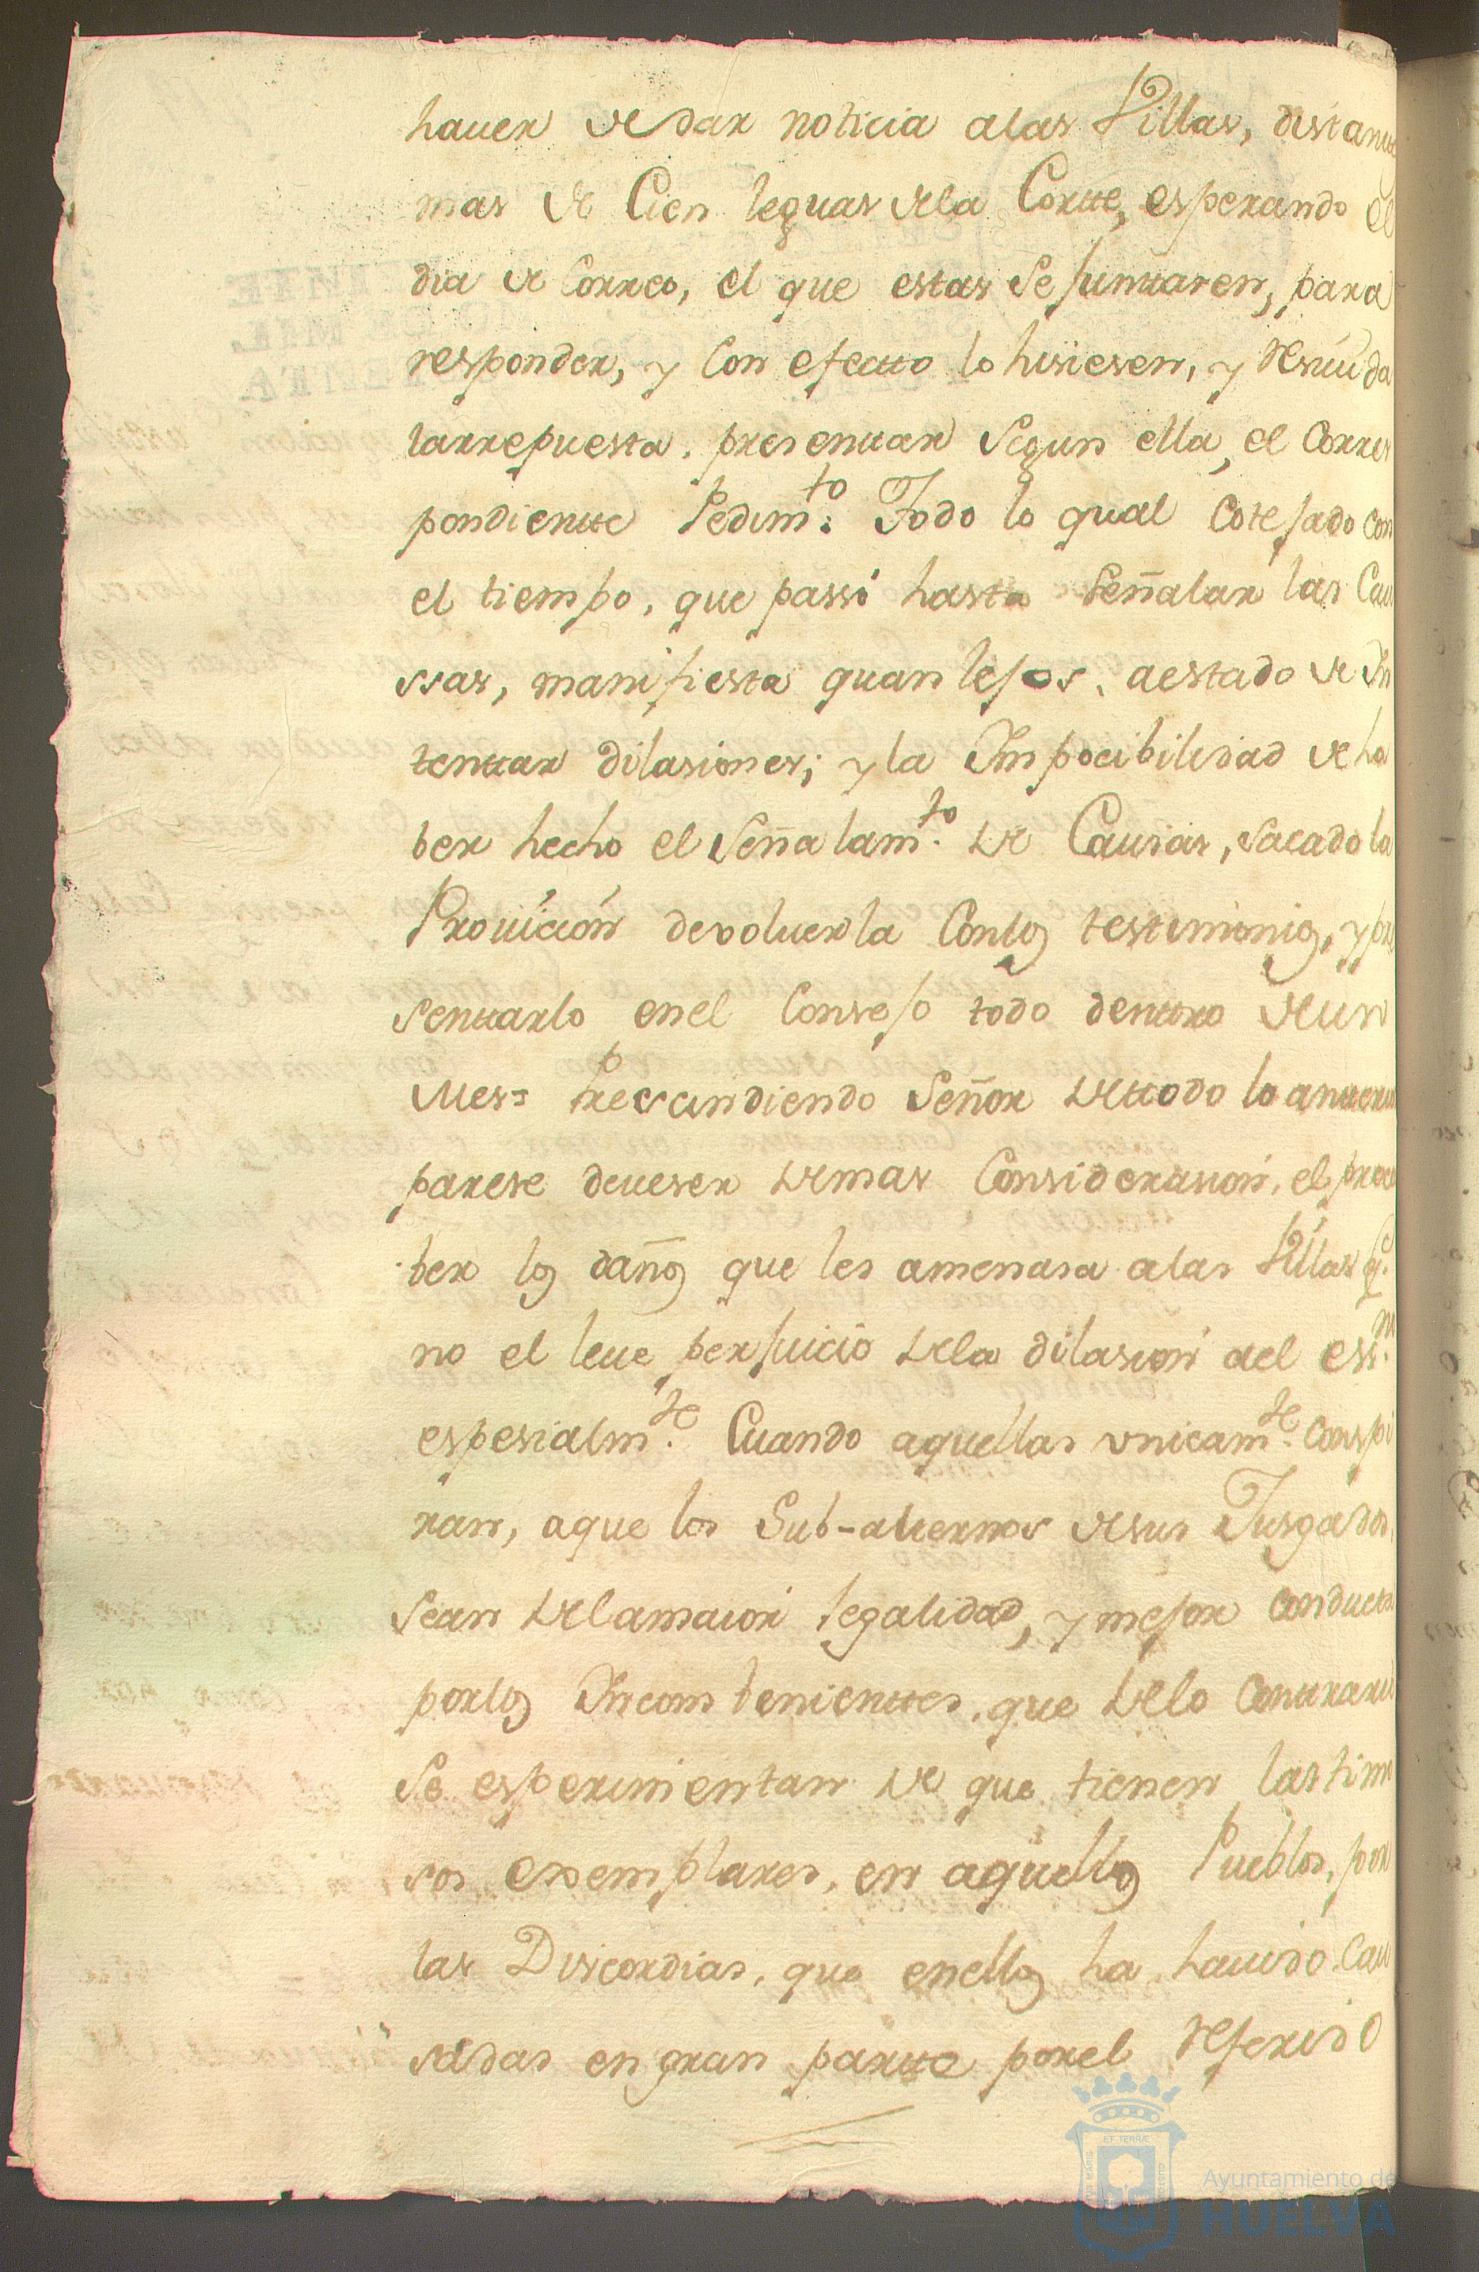 hauer de dar noticia alas Villas, distante
mas de Cien leguas dela Cortte, esperando el
dia de Correo, el que estas se junttasen, para
responder, y con efectto lo hisiesen, y resiuida
larrepuesta, presenttar segun ella, el Corres
pondientte Pedim.to Todo lo qual cotejado con
el tiempo, que passó hasta señalar las Cau
ssas, manifiesta quan lejos, aestado de In
tenttar dilasiones; y la Impocibilidad de ha
ber hecho el señalam.to de Causas, sacado la
Prouición devoluerla Conlos testimonios, y pre
senttarlo enel Consejo todo denttro deun
Mes= Prescindiendo Señor dettodo lo antterior
parese deueser demas Consideracion, el preca
ber los daños que les amenasa alas Villas q.e
no el leue perjuicio dela dilasion del ess.no
espesialm.te Cuando aquellas vnicam.te conspi
ran, aque los Sub-alternos desus Jusgados,
sean delamaior legalidad, y mejor conducta
porlos Incombenienttes, que delo Conttrario
se esperimentan de que tienen lastimo
sos exemplares, en aquellos Pueblos, por
las Discordias, que enellos ha hauido Cau
sadas en gran partte porel referido
Ayuntamiento de
HUELVA